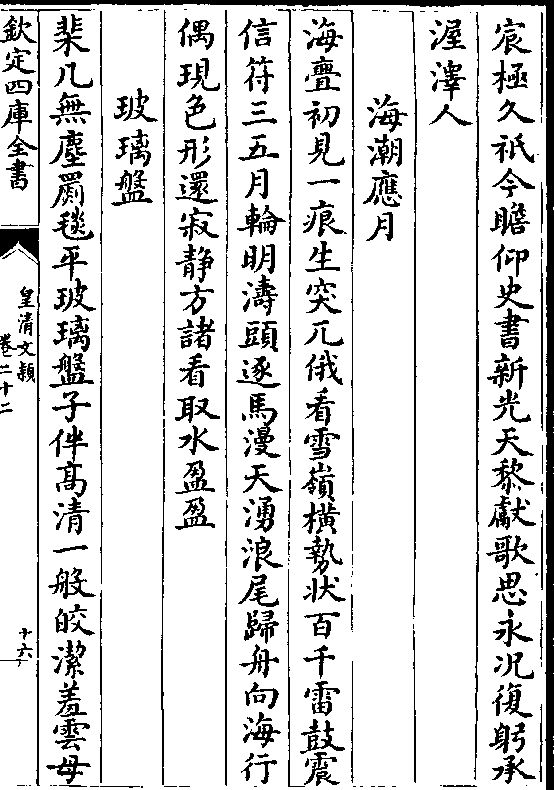 宸極久祇今瞻仰史書新光天黎獻歌思永况復躬承
渥澤人
海潮應月
海亹初見一痕生突兀俄看雪嶺橫勢状百千雷鼓震
信符三五月輪明濤頭逐馬漫天湧浪尾歸舟向海行
偶現色形還寂静方諸看取水盈盈
玻璃盤
棐几無塵罽毯平玻璃盤子伴髙清一般皎潔羞雲母
欽定四庫全書
皇清文頴
卷二十二
十六